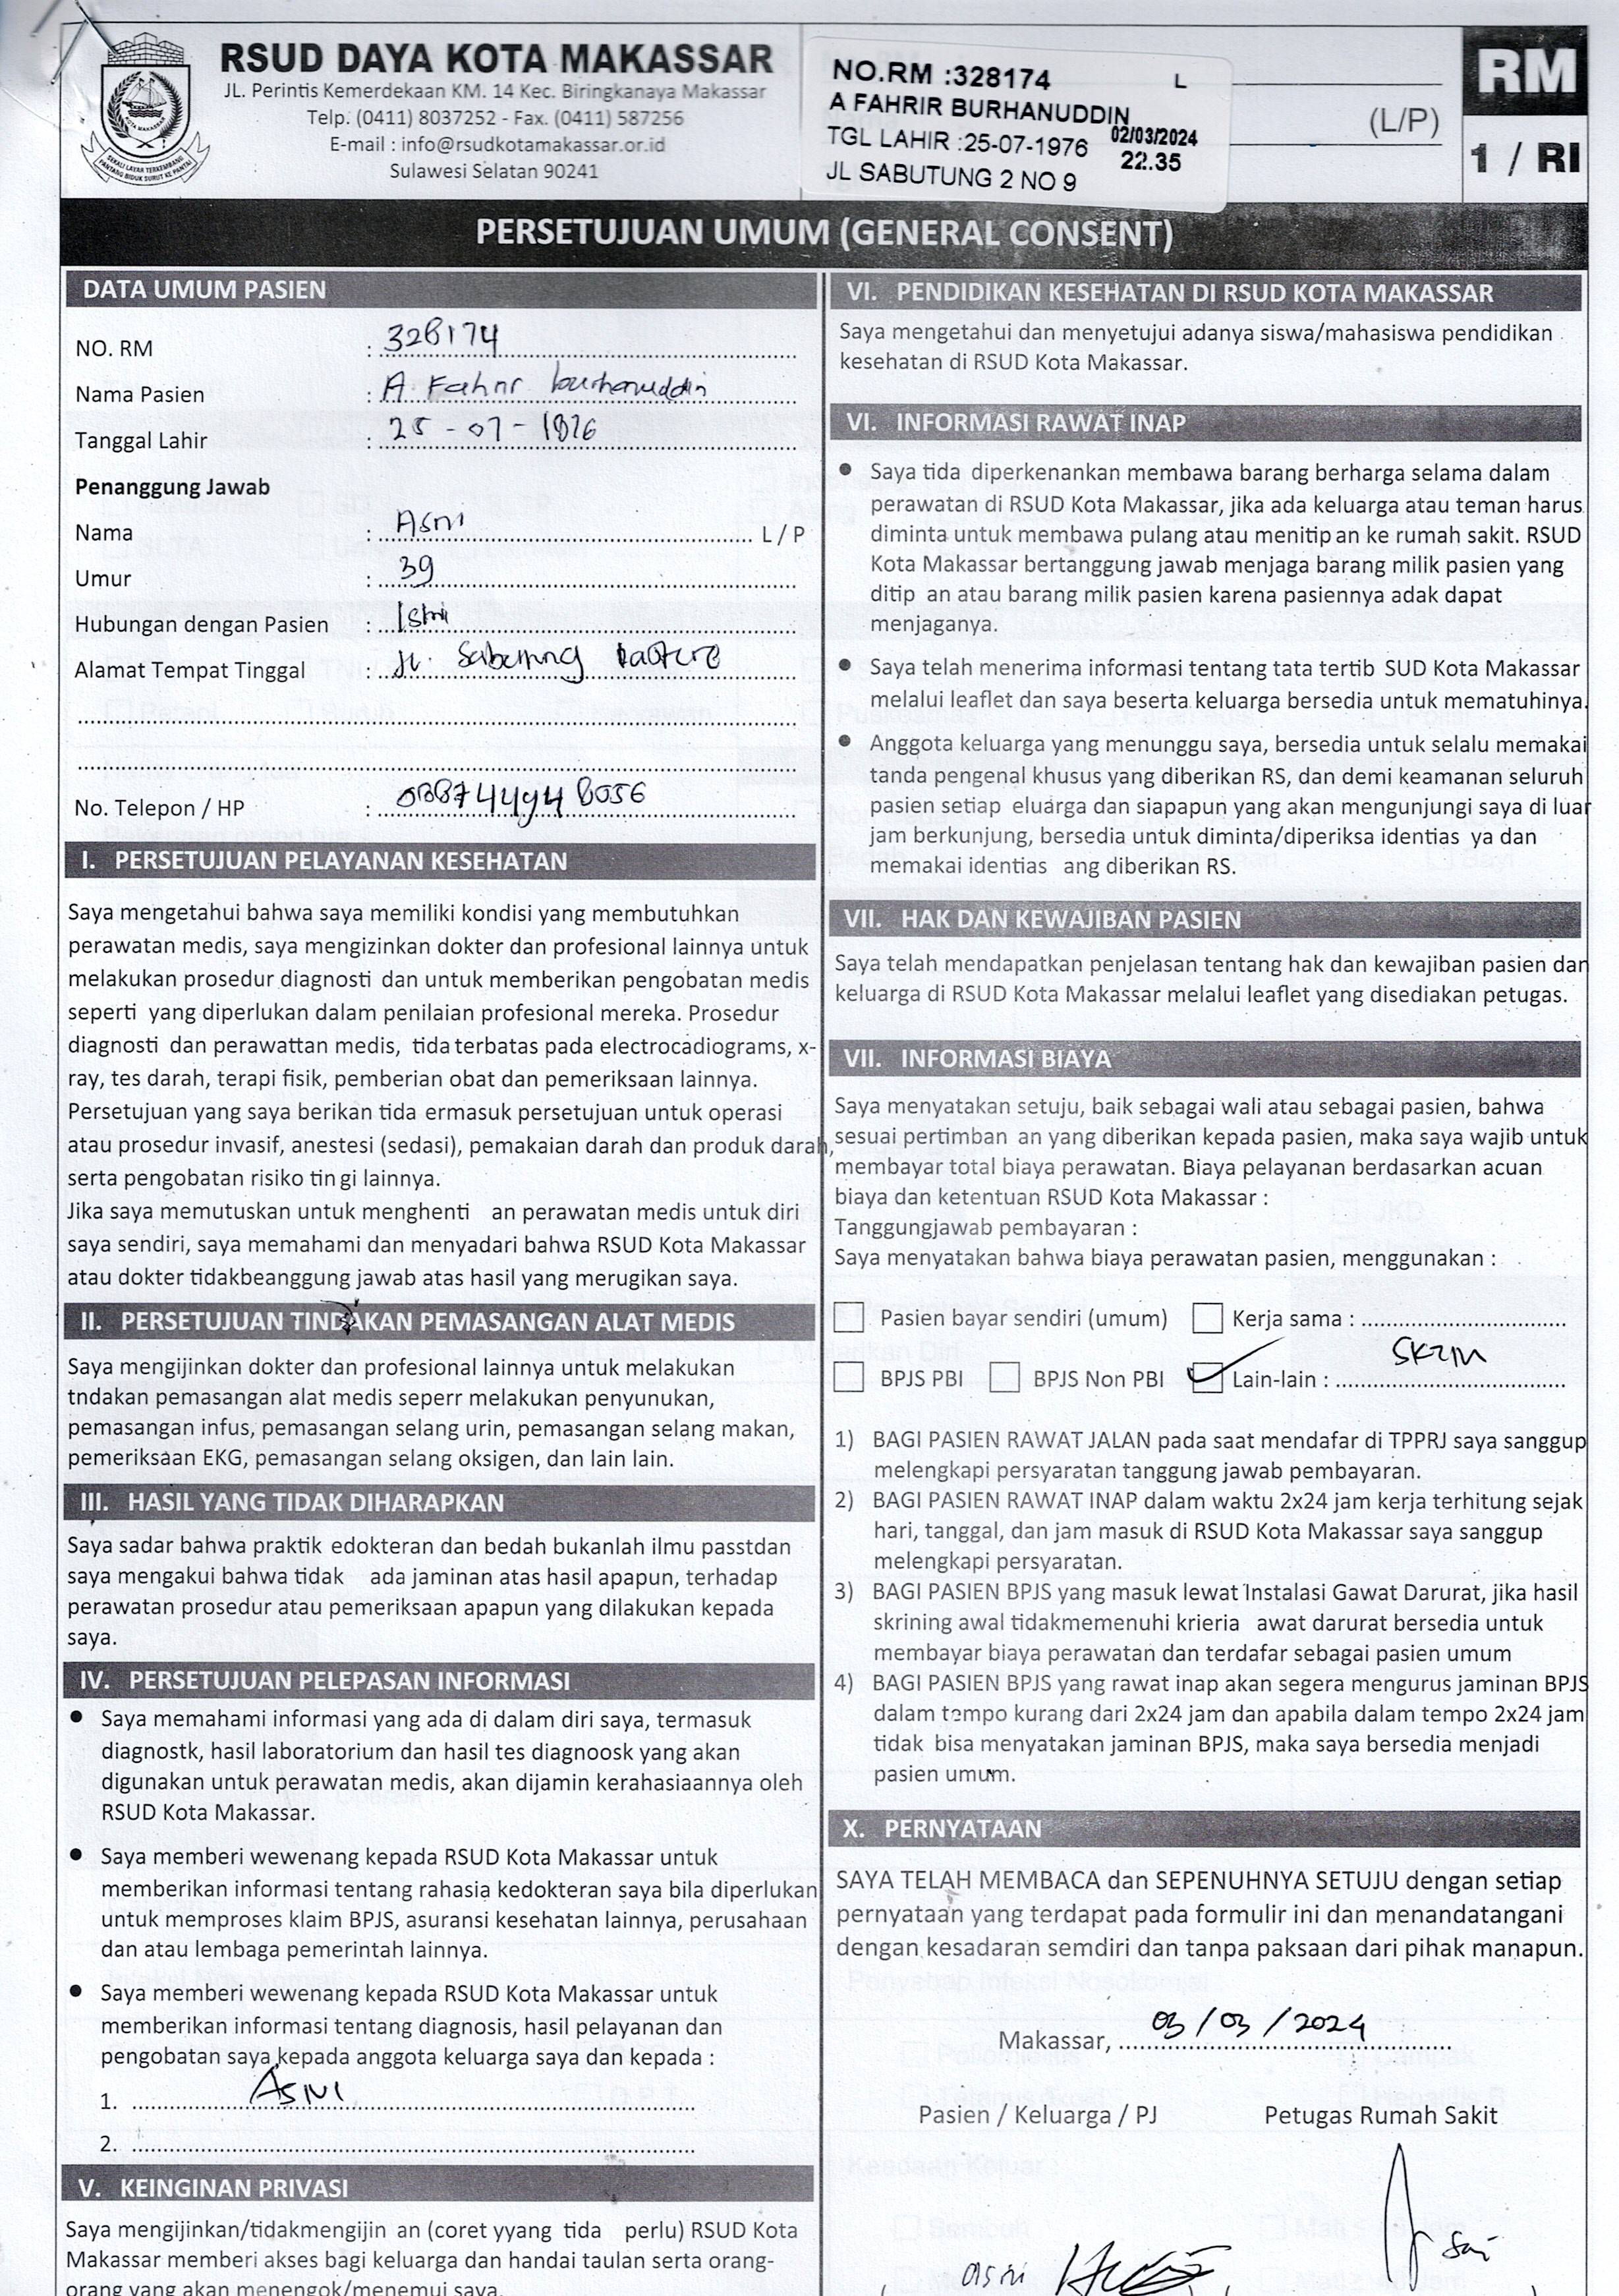 RSUD DAYA KOTA MAKASSAR
JL. Perintis Kemerdekaan KM. 14 Kec. Biringkanaya Makassar
Telp. (0411) 8037252 - Fax. (0411) 587256
E-mail : info@rsudkotamakassar.or.id
Sulawesi Selatan 90241
KOTA MAKASSAR
SEKALI LAYAR TERKEMBANG
PANTANG BIDUK SURUT KE PANTAI
NO.RM :328174 L
A FAHRIR BURHANUDDIN
TGL LAHIR :25-07-1976 02/03/2024
22.35
JL SABUTUNG 2 NO 9
(L/P)
RM
1 / RI
PERSETUJUAN UMUM (GENERAL CONSENT)
DATA UMUM PASIEN
NO. RM : 328174
Nama Pasien : A Fahrir burhanuddin
Tanggal Lahir : 25 - 07 - 1976
Penanggung Jawab
Nama : Asni L / P
Umur : 39
Hubungan dengan Pasien : Istri
Alamat Tempat Tinggal : Jl. Sabutung
No. Telepon / HP :
I. PERSETUJUAN PELAYANAN KESEHATAN
Saya mengetahui bahwa saya memiliki kondisi yang membutuhkan
perawatan medis, saya mengizinkan dokter dan profesional lainnya untuk
melakukan prosedur diagnosti dan untuk memberikan pengobatan medis
seperti yang diperlukan dalam penilaian profesional mereka. Prosedur
diagnosti dan perawattan medis, tida terbatas pada electrocadiograms, x-
ray, tes darah, terapi fisik, pemberian obat dan pemeriksaan lainnya.
Persetujuan yang saya berikan tida ermasuk persetujuan untuk operasi
atau prosedur invasif, anestesi (sedasi), pemakaian darah dan produk darah,
serta pengobatan risiko tin gi lainnya.
Jika saya memutuskan untuk menghenti an perawatan medis untuk diri
saya sendiri, saya memahami dan menyadari bahwa RSUD Kota Makassar
atau dokter tidakbeanggung jawab atas hasil yang merugikan saya.
II. PERSETUJUAN TINDAKAN PEMASANGAN ALAT MEDIS
Saya mengijinkan dokter dan profesional lainnya untuk melakukan
tndakan pemasangan alat medis seperr melakukan penyunukan,
pemasangan infus, pemasangan selang urin, pemasangan selang makan,
pemeriksaan EKG, pemasangan selang oksigen, dan lain lain.
III. HASIL YANG TIDAK DIHARAPKAN
Saya sadar bahwa praktik edokteran dan bedah bukanlah ilmu passtdan
saya mengakui bahwa tidak ada jaminan atas hasil apapun, terhadap
perawatan prosedur atau pemeriksaan apapun yang dilakukan kepada
saya.
IV. PERSETUJUAN PELEPASAN INFORMASI
• Saya memahami informasi yang ada di dalam diri saya, termasuk
diagnostk, hasil laboratorium dan hasil tes diagnoosk yang akan
digunakan untuk perawatan medis, akan dijamin kerahasiaannya oleh
RSUD Kota Makassar.
• Saya memberi wewenang kepada RSUD Kota Makassar untuk
memberikan informasi tentang rahasia kedokteran saya bila diperlukan
untuk memproses klaim BPJS, asuransi kesehatan lainnya, perusahaan
dan atau lembaga pemerintah lainnya.
• Saya memberi wewenang kepada RSUD Kota Makassar untuk
memberikan informasi tentang diagnosis, hasil pelayanan dan
pengobatan saya kepada anggota keluarga saya dan kepada :
1. Asni
2.
V. KEINGINAN PRIVASI
Saya mengijinkan/tidakmengijin an (coret yyang tida perlu) RSUD Kota
Makassar memberi akses bagi keluarga dan handai taulan serta orang-
orang yang akan menengok/menemui saya.
VI. PENDIDIKAN KESEHATAN DI RSUD KOTA MAKASSAR
Saya mengetahui dan menyetujui adanya siswa/mahasiswa pendidikan
kesehatan di RSUD Kota Makassar.
VI. INFORMASI RAWAT INAP
• Saya tida diperkenankan membawa barang berharga selama dalam
perawatan di RSUD Kota Makassar, jika ada keluarga atau teman harus
diminta untuk membawa pulang atau menitip an ke rumah sakit. RSUD
Kota Makassar bertanggung jawab menjaga barang milik pasien yang
ditip an atau barang milik pasien karena pasiennya adak dapat
menjaganya.
• Saya telah menerima informasi tentang tata tertib SUD Kota Makassar
melalui leaflet dan saya beserta keluarga bersedia untuk mematuhinya.
• Anggota keluarga yang menunggu saya, bersedia untuk selalu memakai
tanda pengenal khusus yang diberikan RS, dan demi keamanan seluruh
pasien setiap eluarga dan siapapun yang akan mengunjungi saya di luar
jam berkunjung, bersedia untuk diminta/diperiksa identias ya dan
memakai identias ang diberikan RS.
VII. HAK DAN KEWAJIBAN PASIEN
Saya telah mendapatkan penjelasan tentang hak dan kewajiban pasien dan
keluarga di RSUD Kota Makassar melalui leaflet yang disediakan petugas.
VII. INFORMASI BIAYA
Saya menyatakan setuju, baik sebagai wali atau sebagai pasien, bahwa
sesuai pertimban an yang diberikan kepada pasien, maka saya wajib untuk
membayar total biaya perawatan. Biaya pelayanan berdasarkan acuan
biaya dan ketentuan RSUD Kota Makassar :
Tanggungjawab pembayaran :
Saya menyatakan bahwa biaya perawatan pasien, menggunakan :
Pasien bayar sendiri (umum) Kerja sama :
BPJS PBI BPJS Non PBI Lain-lain : SKTM
1) BAGI PASIEN RAWAT JALAN pada saat mendafar di TPPRJ saya sanggup
melengkapi persyaratan tanggung jawab pembayaran.
2) BAGI PASIEN RAWAT INAP dalam waktu 2x24 jam kerja terhitung sejak
hari, tanggal, dan jam masuk di RSUD Kota Makassar saya sanggup
melengkapi persyaratan.
3) BAGI PASIEN BPJS yang masuk lewat Instalasi Gawat Darurat, jika hasil
skrining awal tidakmemenuhi krieria awat darurat bersedia untuk
membayar biaya perawatan dan terdafar sebagai pasien umum
4) BAGI PASIEN BPJS yang rawat inap akan segera mengurus jaminan BPJS
dalam tempo kurang dari 2x24 jam dan apabila dalam tempo 2x24 jam
tidak bisa menyatakan jaminan BPJS, maka saya bersedia menjadi
pasien umum.
X. PERNYATAAN
SAYA TELAH MEMBACA dan SEPENUHNYA SETUJU dengan setiap
pernyataan yang terdapat pada formulir ini dan menandatangani
dengan kesadaran semdiri dan tanpa paksaan dari pihak manapun.
Makassar, 03/03/2024
Pasien / Keluarga / PJ Petugas Rumah Sakit
asni